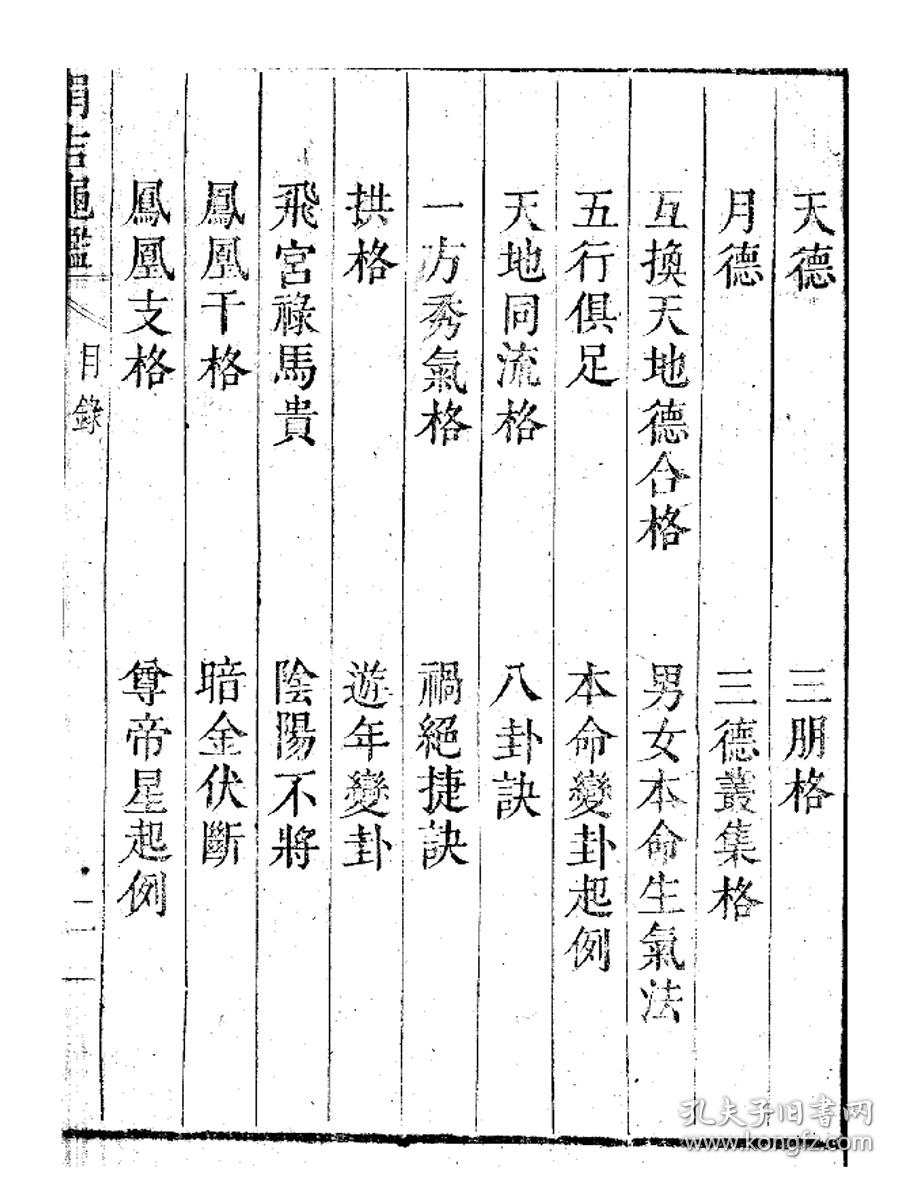 天德　三朋格
月德　三德叢集格
互換天地德合格　男女本命生氣法
五行俱足　本命變卦起例
天地同流格　八卦訣
一方秀氣格　禍絕捷訣
拱格　遊年變卦
飛宮祿馬貴　陰陽不將
鳳凰干格　暗金伏斷
鳳凰支格　尊帝星起例
涓吉龜鑑　目錄　二
孔夫子旧书网
www.kongfz.com